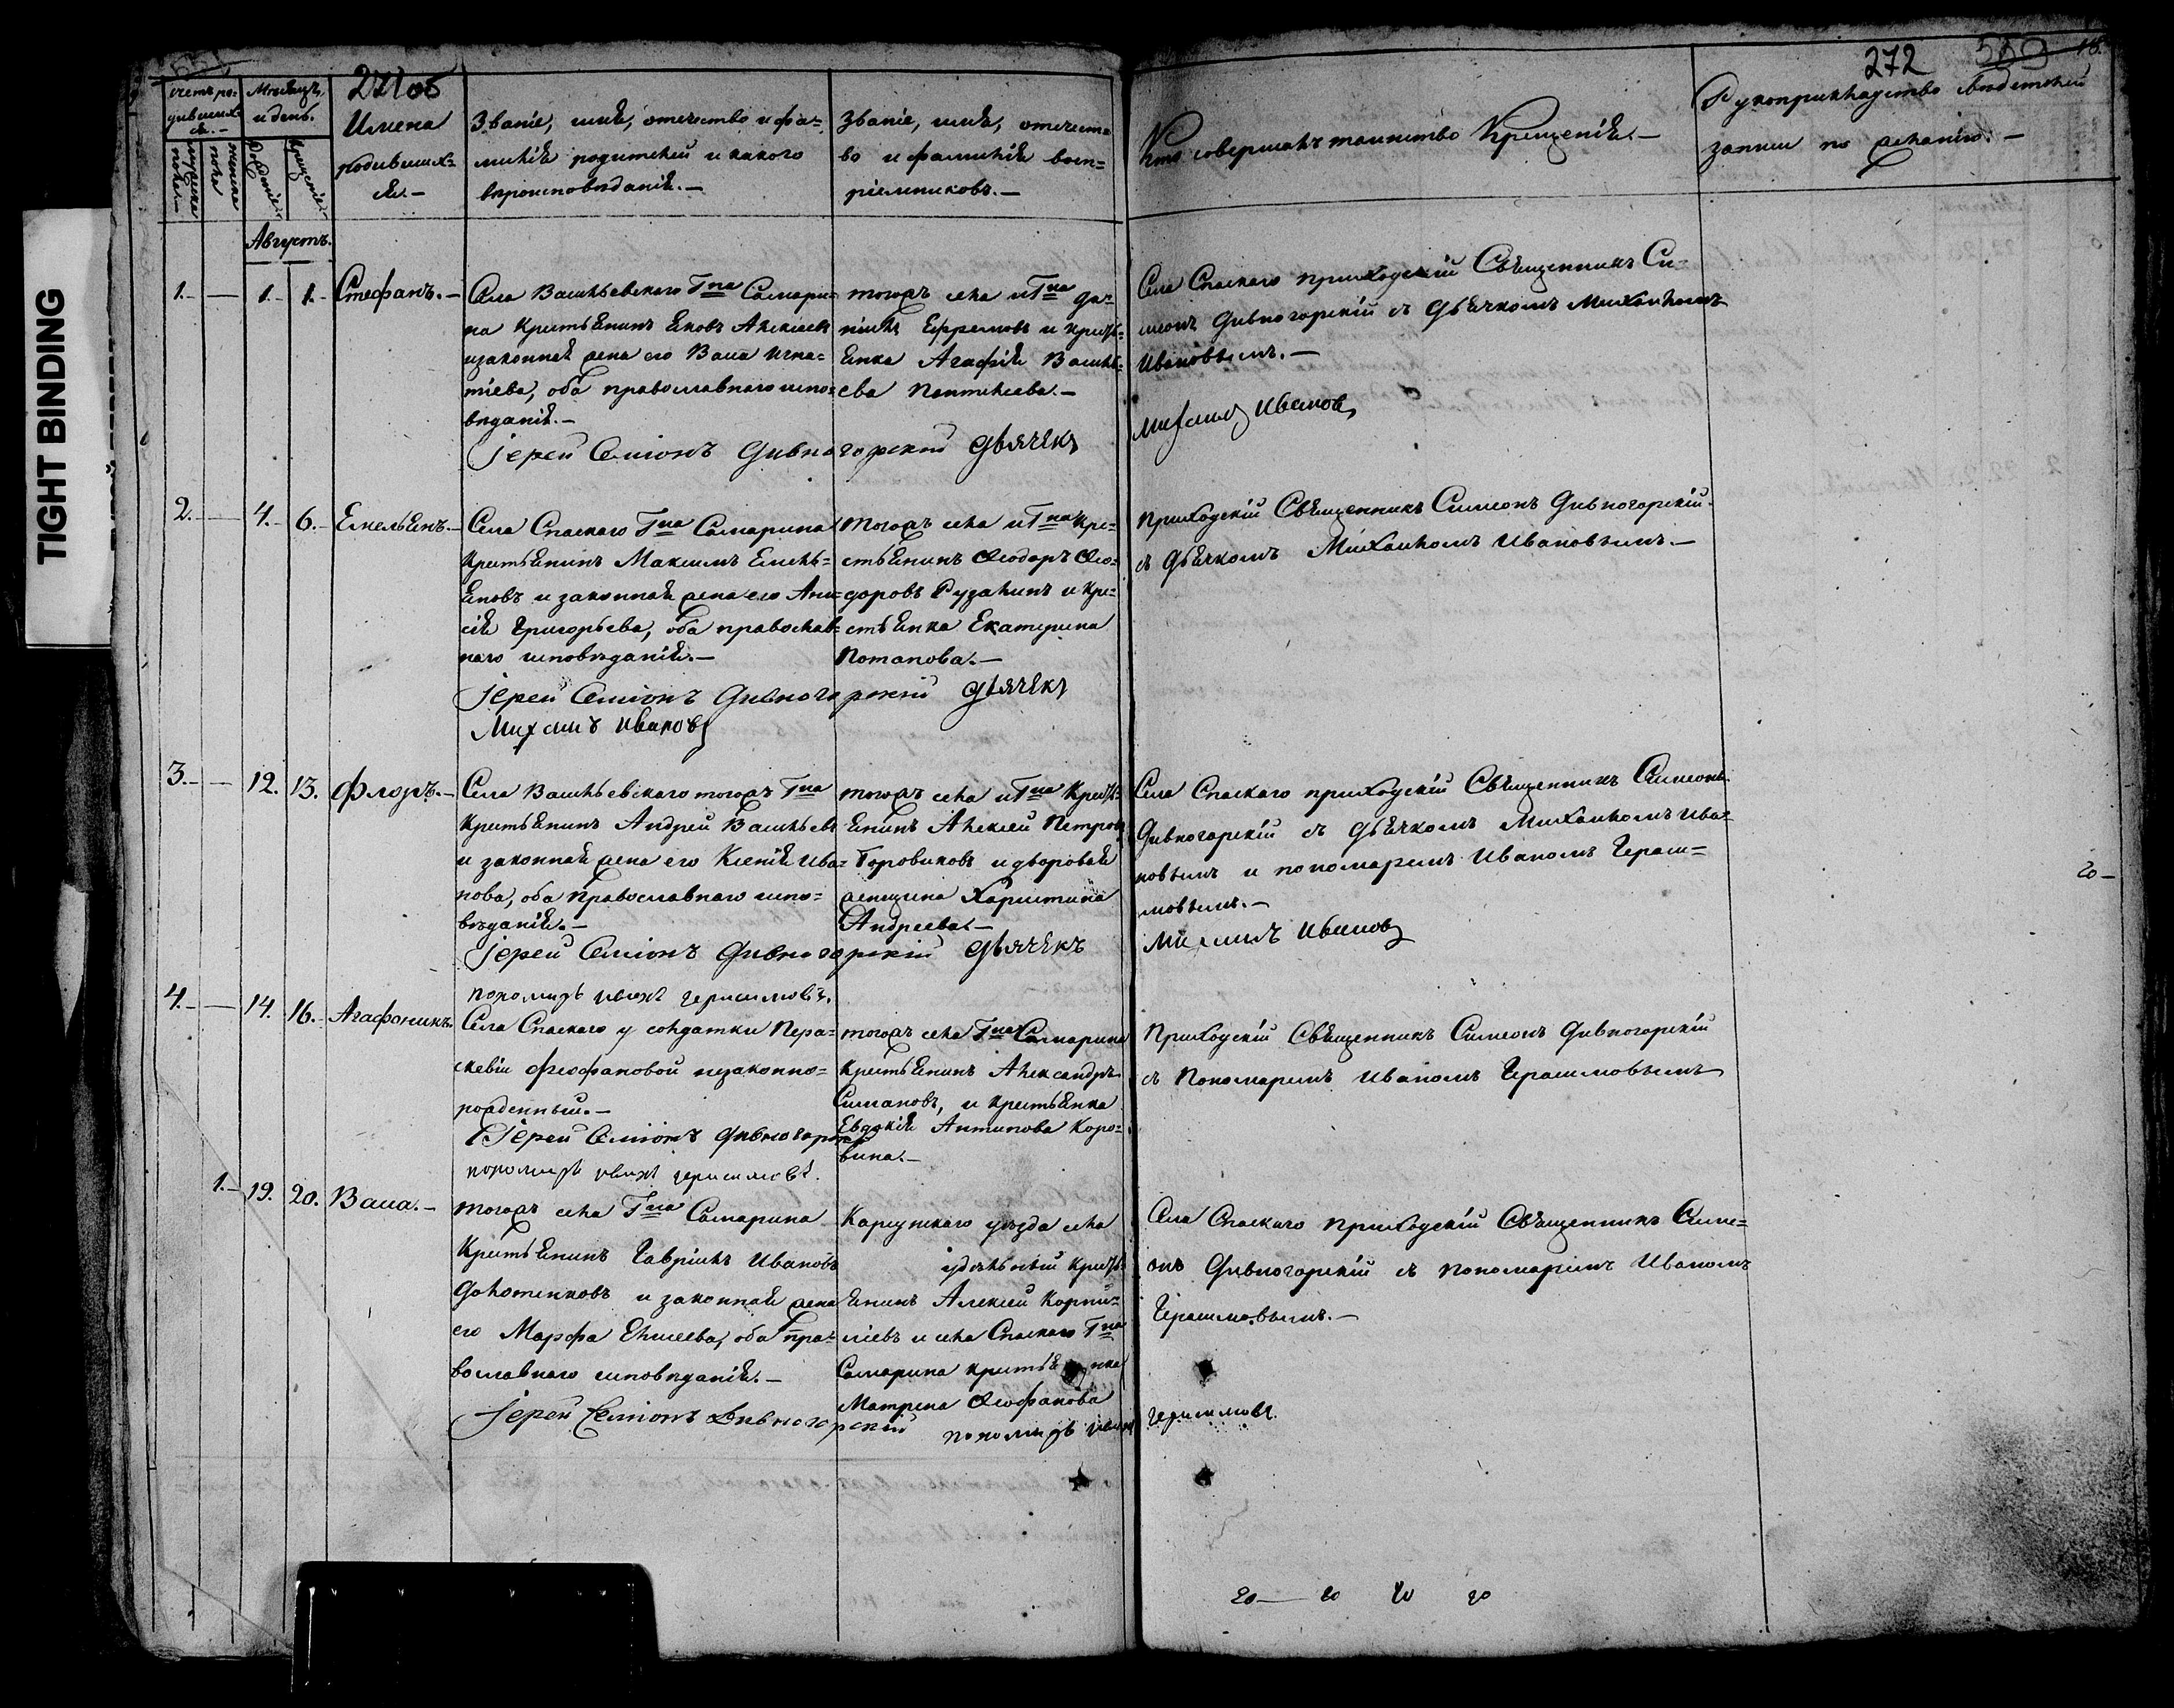 TIGHT BINDING
271об
272
Счетъ ро-
дивших-
ся.-
мужеска
пола.-
женска
пола
Мѣсяцъ
и день.
рожденія
крещенія
Имена
родивших-
ся.-
Званіе, имя, отчество и фа-
милія родителей и какого
вѣроисповѣданія.-
Званіе, имя, отчест-
во и фамилія восп-
ріемниковъ.-
Кто совершалъ таинство Крещенія.-
Рукоприкладство свидѣтелей
записи по желанію.-
Августъ.
1.- — 1.- 1.- Стефанъ.-
Села Васильевскаго Гна Самари-
на крестьянинъ Яковъ Алексѣевъ
и законная жена его Васса Игна-
тіева, оба православнаго испо-
вѣданія.-
Іерей Симіонъ Дивногорский дьячекъ
тогожъ села и Гна Да-
ніилъ Ефремовъ и кресть-
янка Агафія Василь-
ева Пантелеева.-
Села Спаскаго приходскій Священникъ Си-
меонъ Дивногорскій съ дьячкомъ Михаиломъ
Ивановымъ.-
Михаилъ Ивановъ
2.- — 4.- 6.- Емельянъ.-
Села Спаскаго Гна Самарина
крестьянинъ Максимъ Емель-
яновъ и законная жена его Ани-
сія Григорьева, оба православ-
наго исповѣданія.-
Іерей Симіонъ Дивногорскій дьячекъ
Михаилъ Ивановъ
тогожъ села и Гна кре-
стьянинъ Ѳеодоръ Ѳео-
доровъ Рузакинъ и кре-
стьянка Екатерина
Потапова.-
Приходскій Священникъ Симеонъ Дивногорскій
съ дьячкомъ Михаиломъ Ивановымъ.-
3.- — 12. 13. Флоръ.-
Села Васильевскаго тогожъ Гна
крестьянинъ Андрей Васильевъ
и законная жена его Ксенія Ива-
нова, оба православнаго испо-
вѣданія.-
Іерей Симіонъ Дивногорскій дьячекъ
пономарь иванъ герасимовъ.
тогожъ села и Гна кресть-
янинъ Алексѣй Петровъ
Боровиковъ и дворовая
женщина Харитина
Андреева.-
Села Спаскаго приходскій Священникъ Симеонъ
Дивногорскій съ дьячкомъ Михаиломъ Ива-
новымъ и пономаремъ Иваномъ Гераси-
мовымъ.-
Михаилъ Ивановъ
20-
4.- — 14. 16. Агафоникъ.
Села Спаскаго у солдатки Пера-
скевіи Феофановой незаконно-
рожденный.-
Іерей Симіонъ Дивногорскій
пономарь иванъ герасимовъ.
тогожъ села Гна Самарина
крестьянинъ Александръ
Симановъ, и крестьянка
Евдокія Антипова Коро-
вина.-
Приходскій Священникъ Симеонъ Дивногорскій
съ Пономаремъ Иваномъ Герасимовымъ
1.- 19. 20. Васса.-
тогожъ села Гна Самарина
крестьянинъ Гавріилъ Ивановъ
Долотенковъ и законная жена
его Марфа Елисеева, оба пра-
вославнаго исповѣданія.-
Іерей Симіонъ Дивногорскій
Карсунскаго уѣзда села
удѣльный кресть-
янинъ Алексѣй Корни-
ліевъ и села Спаскаго Гна
Самарина крестьянка
Матрена Ѳеофанова
пономарь иванъ герасимовъ.
Села Спаскаго приходскій Священникъ Симе-
онъ Дивногорскій съ пономаремъ Иваномъ
Герасимовымъ.-
20— 20 20 20